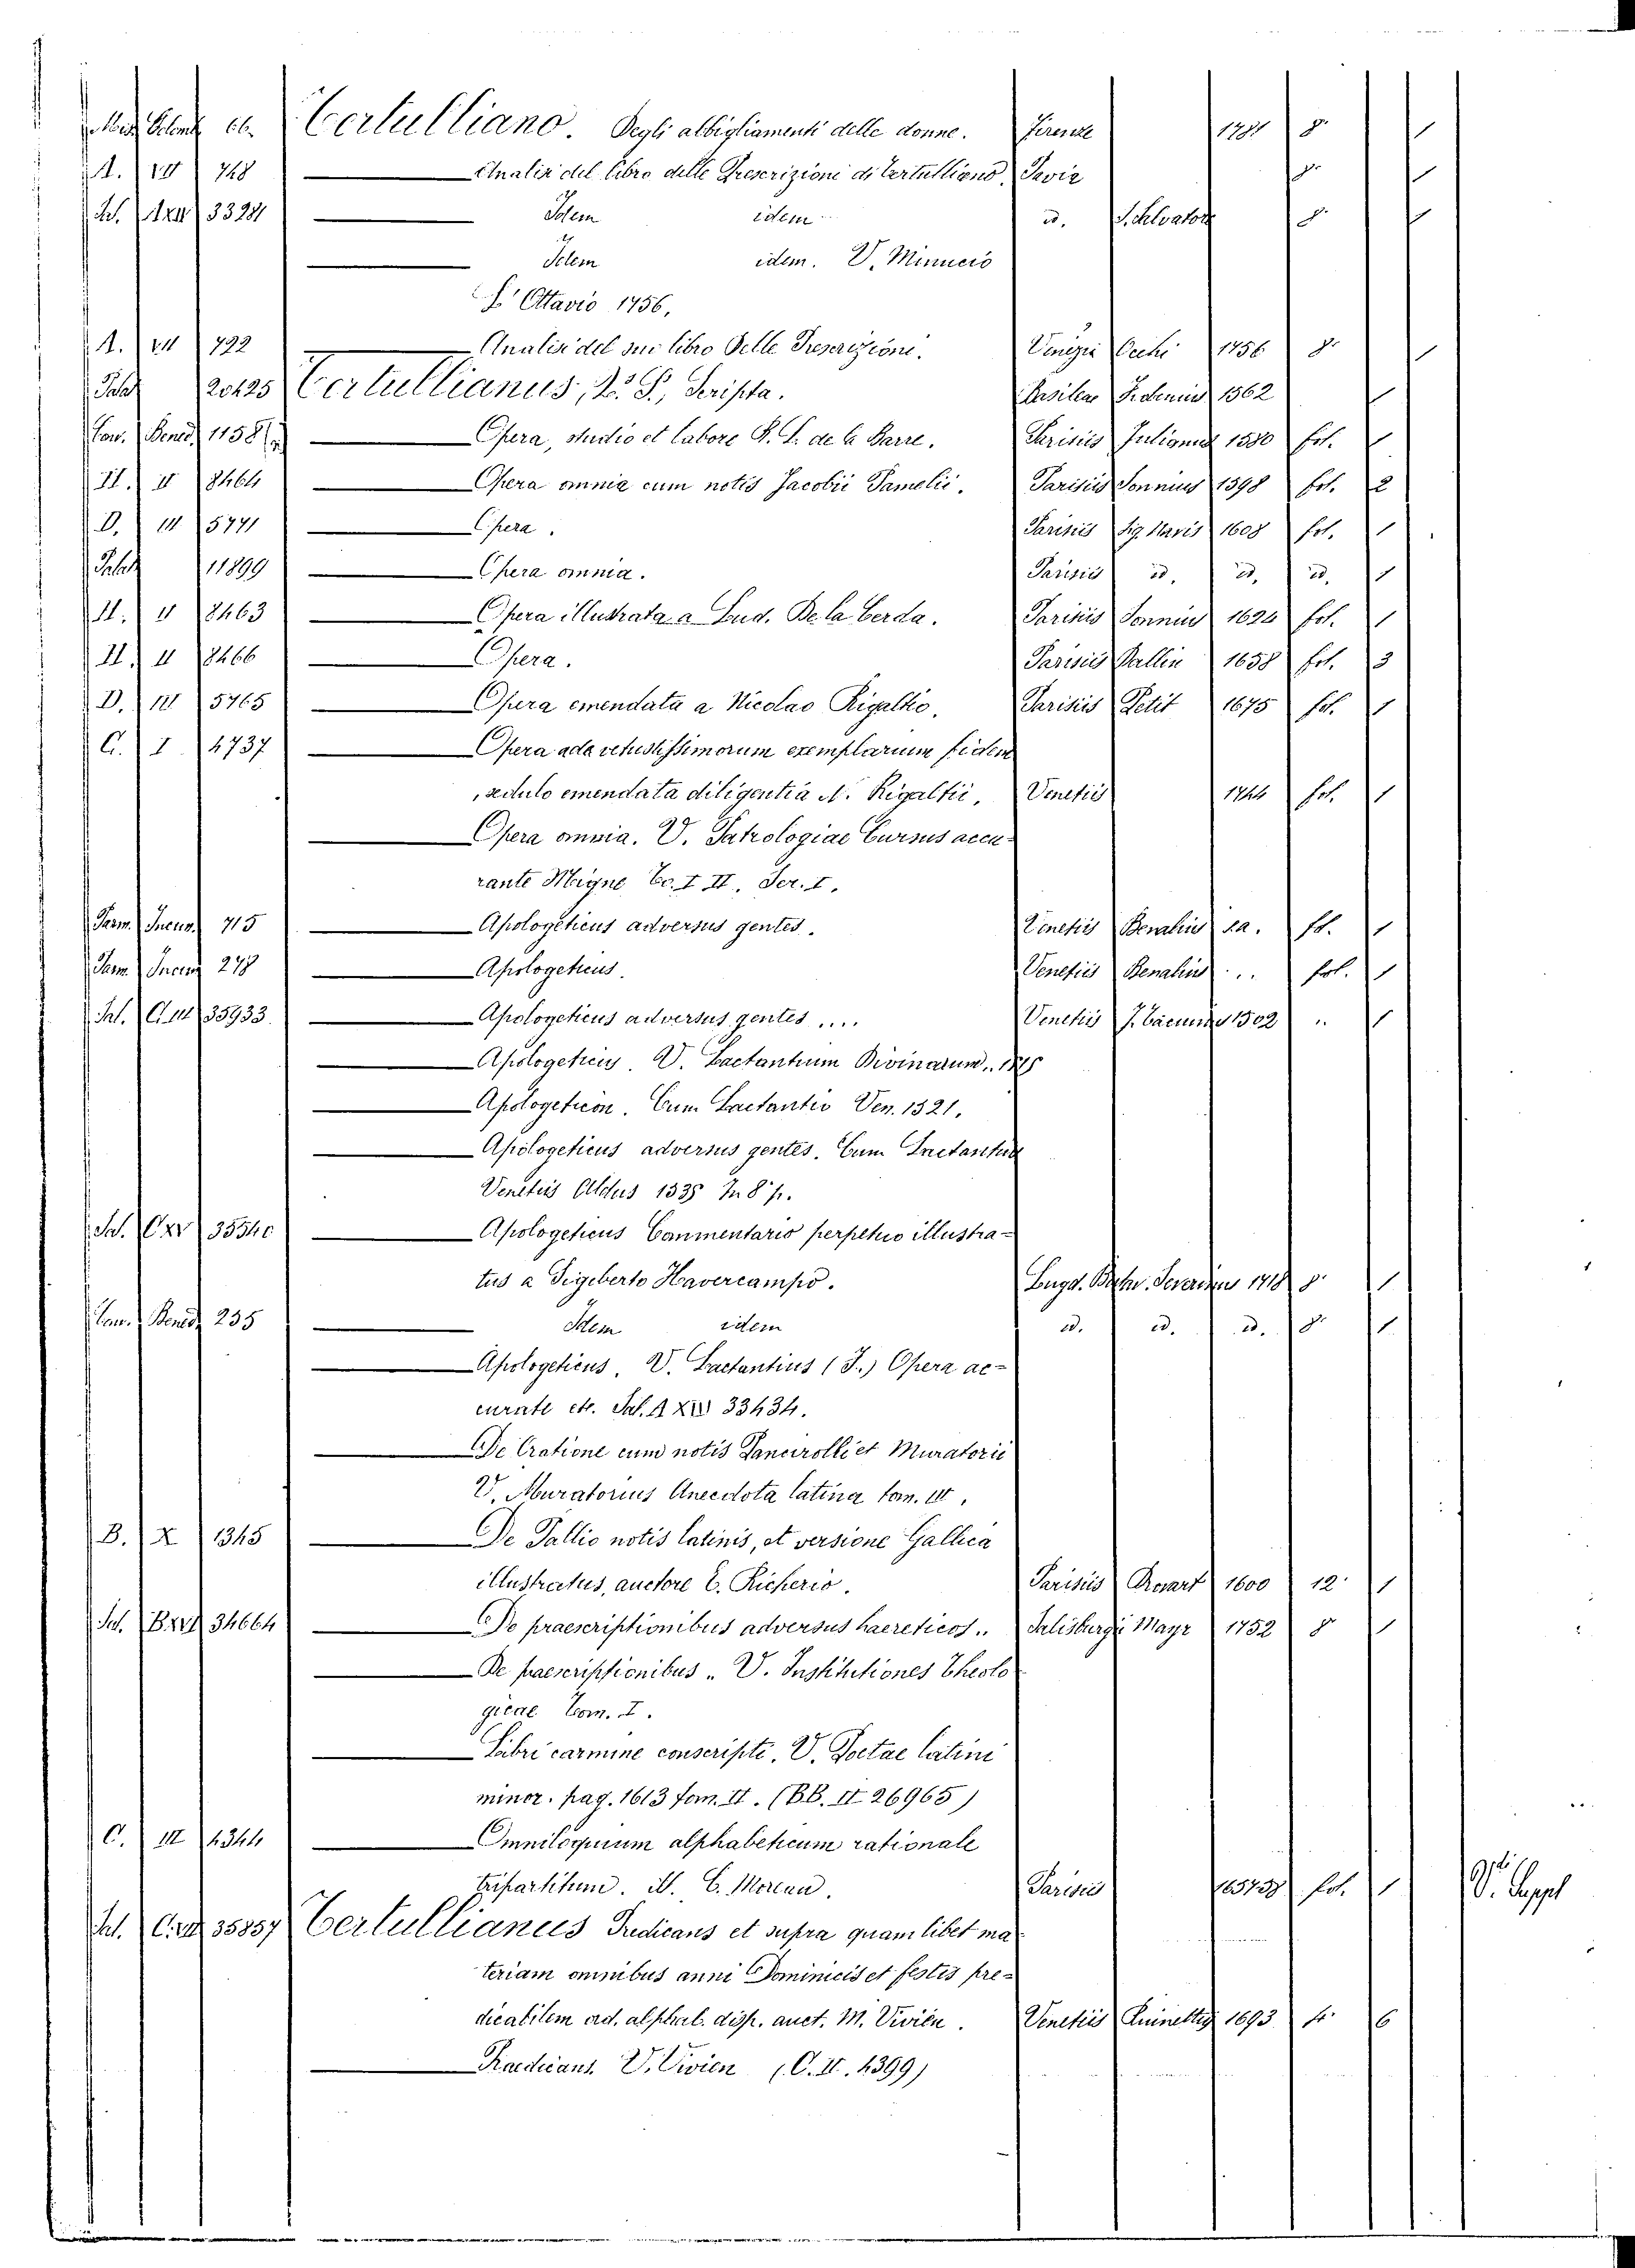 Tertulliano. Degli abbigliamenti delle donne. Firenze 1781 8°
A. VII 748 Analisi del libro delle Prescrizioni di Tertulliano. Pavia 8° 1
Sal. 33281 Idem idem id. S. Salvatore 8° 1
Idem idem. V. Minucio
F. Ottavio 1756.
A. VII 792 Analisi del suo libro Delle Prescrizioni. Venezia Occhi 1756 8° 1
20125 Tertullianus, Q. S., Scripta. Basileae Frobenius 1562 1
Benei 1158 Opera, studio et labore R. L. de la Barre. Parisiis Julianus 1580 fol.
II. II 8464 Opera omnia cum notis Jacobii Pamelii. Parisiis Sonnius 1598 fol. 2
D. III 5771 Opera. Parisiis Sig. Navis 1608 fol. 1
11899 Opera omnia. Parisiis id. id. id. 1
II. II 8463 Opera illustrata a Lud. De la Cerda. Parisiis Sonnius 1624 fol. 1
II. II 8466 Opera. Parisiis Vallin 1658 fol. 3
D. III 5765 Opera emendata a Nicolao Rigaltio. Parisiis Petit 1675 fol. 1
C. I. 4737 Opera ad vetustissimorum exemplarium fidem
sedulo emendata diligentia N. Rigaltii, Venetiis 1744 fol. 1
Opera omnia. V. Patrologiae Cursus accu-
rante Migne To. I II. Ser. I.
Parm. Incun. 715 Apologeticus adversus gentes. Venetiis Benalius s.a. fol. 1
Parm. Incun. 278 Apologeticus. Venetiis Benalius .. fol. 1
Sal. C. III 35933 Apologeticus adversus gentes .... Venetiis 1502 .. 1
Apologeticus. V. Lactantium Divinarum..
Apologeticon. Cum Lactantio Ven. 1521.
Apologeticus adversus gentes. Cum Lactantius
Venetiis Aldus 1535 In 8° p.
Sal. C XV 35540 Apologeticus Commentario perpetuo illustra-
tus a Sigeberto Havercampo. Lugd. Batav. Severinus 1718 8° 1
Benei 235 Idem idem id. id. id. 8° 1
Apologeticus. V. Lactantius (J.) Opera ac-
curate etc. Sal. A XIII 33434.
De Oratione cum notis Pancirolli et Muratorii
V. Muratorius Anecdota latina tom. III.
B. X 1345 De Pallio notis latinis, et versione Gallica
illustratus, auctore E. Richerio. Parisiis Drouart 1600 12° 1
Sal. 34664 De praescriptionibus adversus haereticos.. Salisburgi Mayr 1752 8° 1
De praescriptionibus.. V. Institutiones Theolo
gicae Tom. I.
Libri carmine conscripti. V. Poetae latini
minor. pag. 1613 tom. II. (BB. II 26965)
C. III 4344 Omniloquium alphabeticum rationale
tripartitum. A. C. Moreau. Parisiis fol. 1 V. Suppl
Sal. 35857 Tertullianus Predicans et supra quamlibet ma
teriam omnibus anni Dominicis et festis pre-
dicabilem ord. alphab. disp. auct. M. Vivien. Venetiis 1693 4° 6
Praedicans. V. Vivien (C. II. 4399)